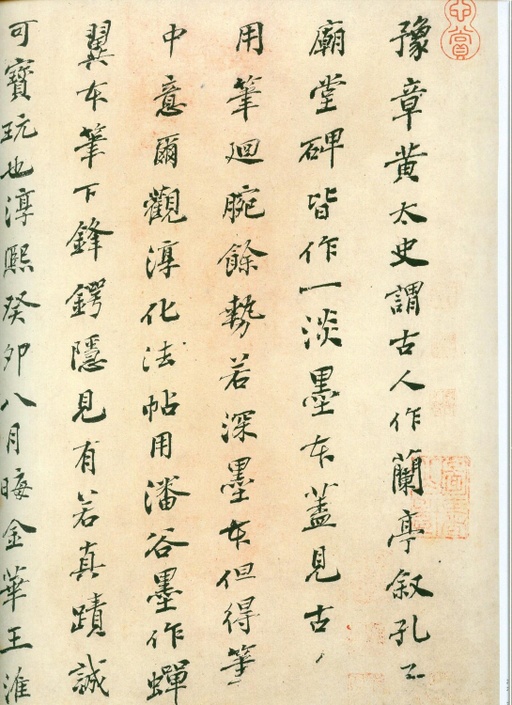 豫章黄太史謂古人作蘭亭叙孔子
廟堂碑皆作一淡墨本蓋見古
用筆迴腕餘勢若深墨本但得筆
中意爾觀淳化法帖用潘谷墨作蟬
翼本筆下鋒鍔隱見有若真蹟誠
可寶玩也淳熙癸卯八月晦金華王淮